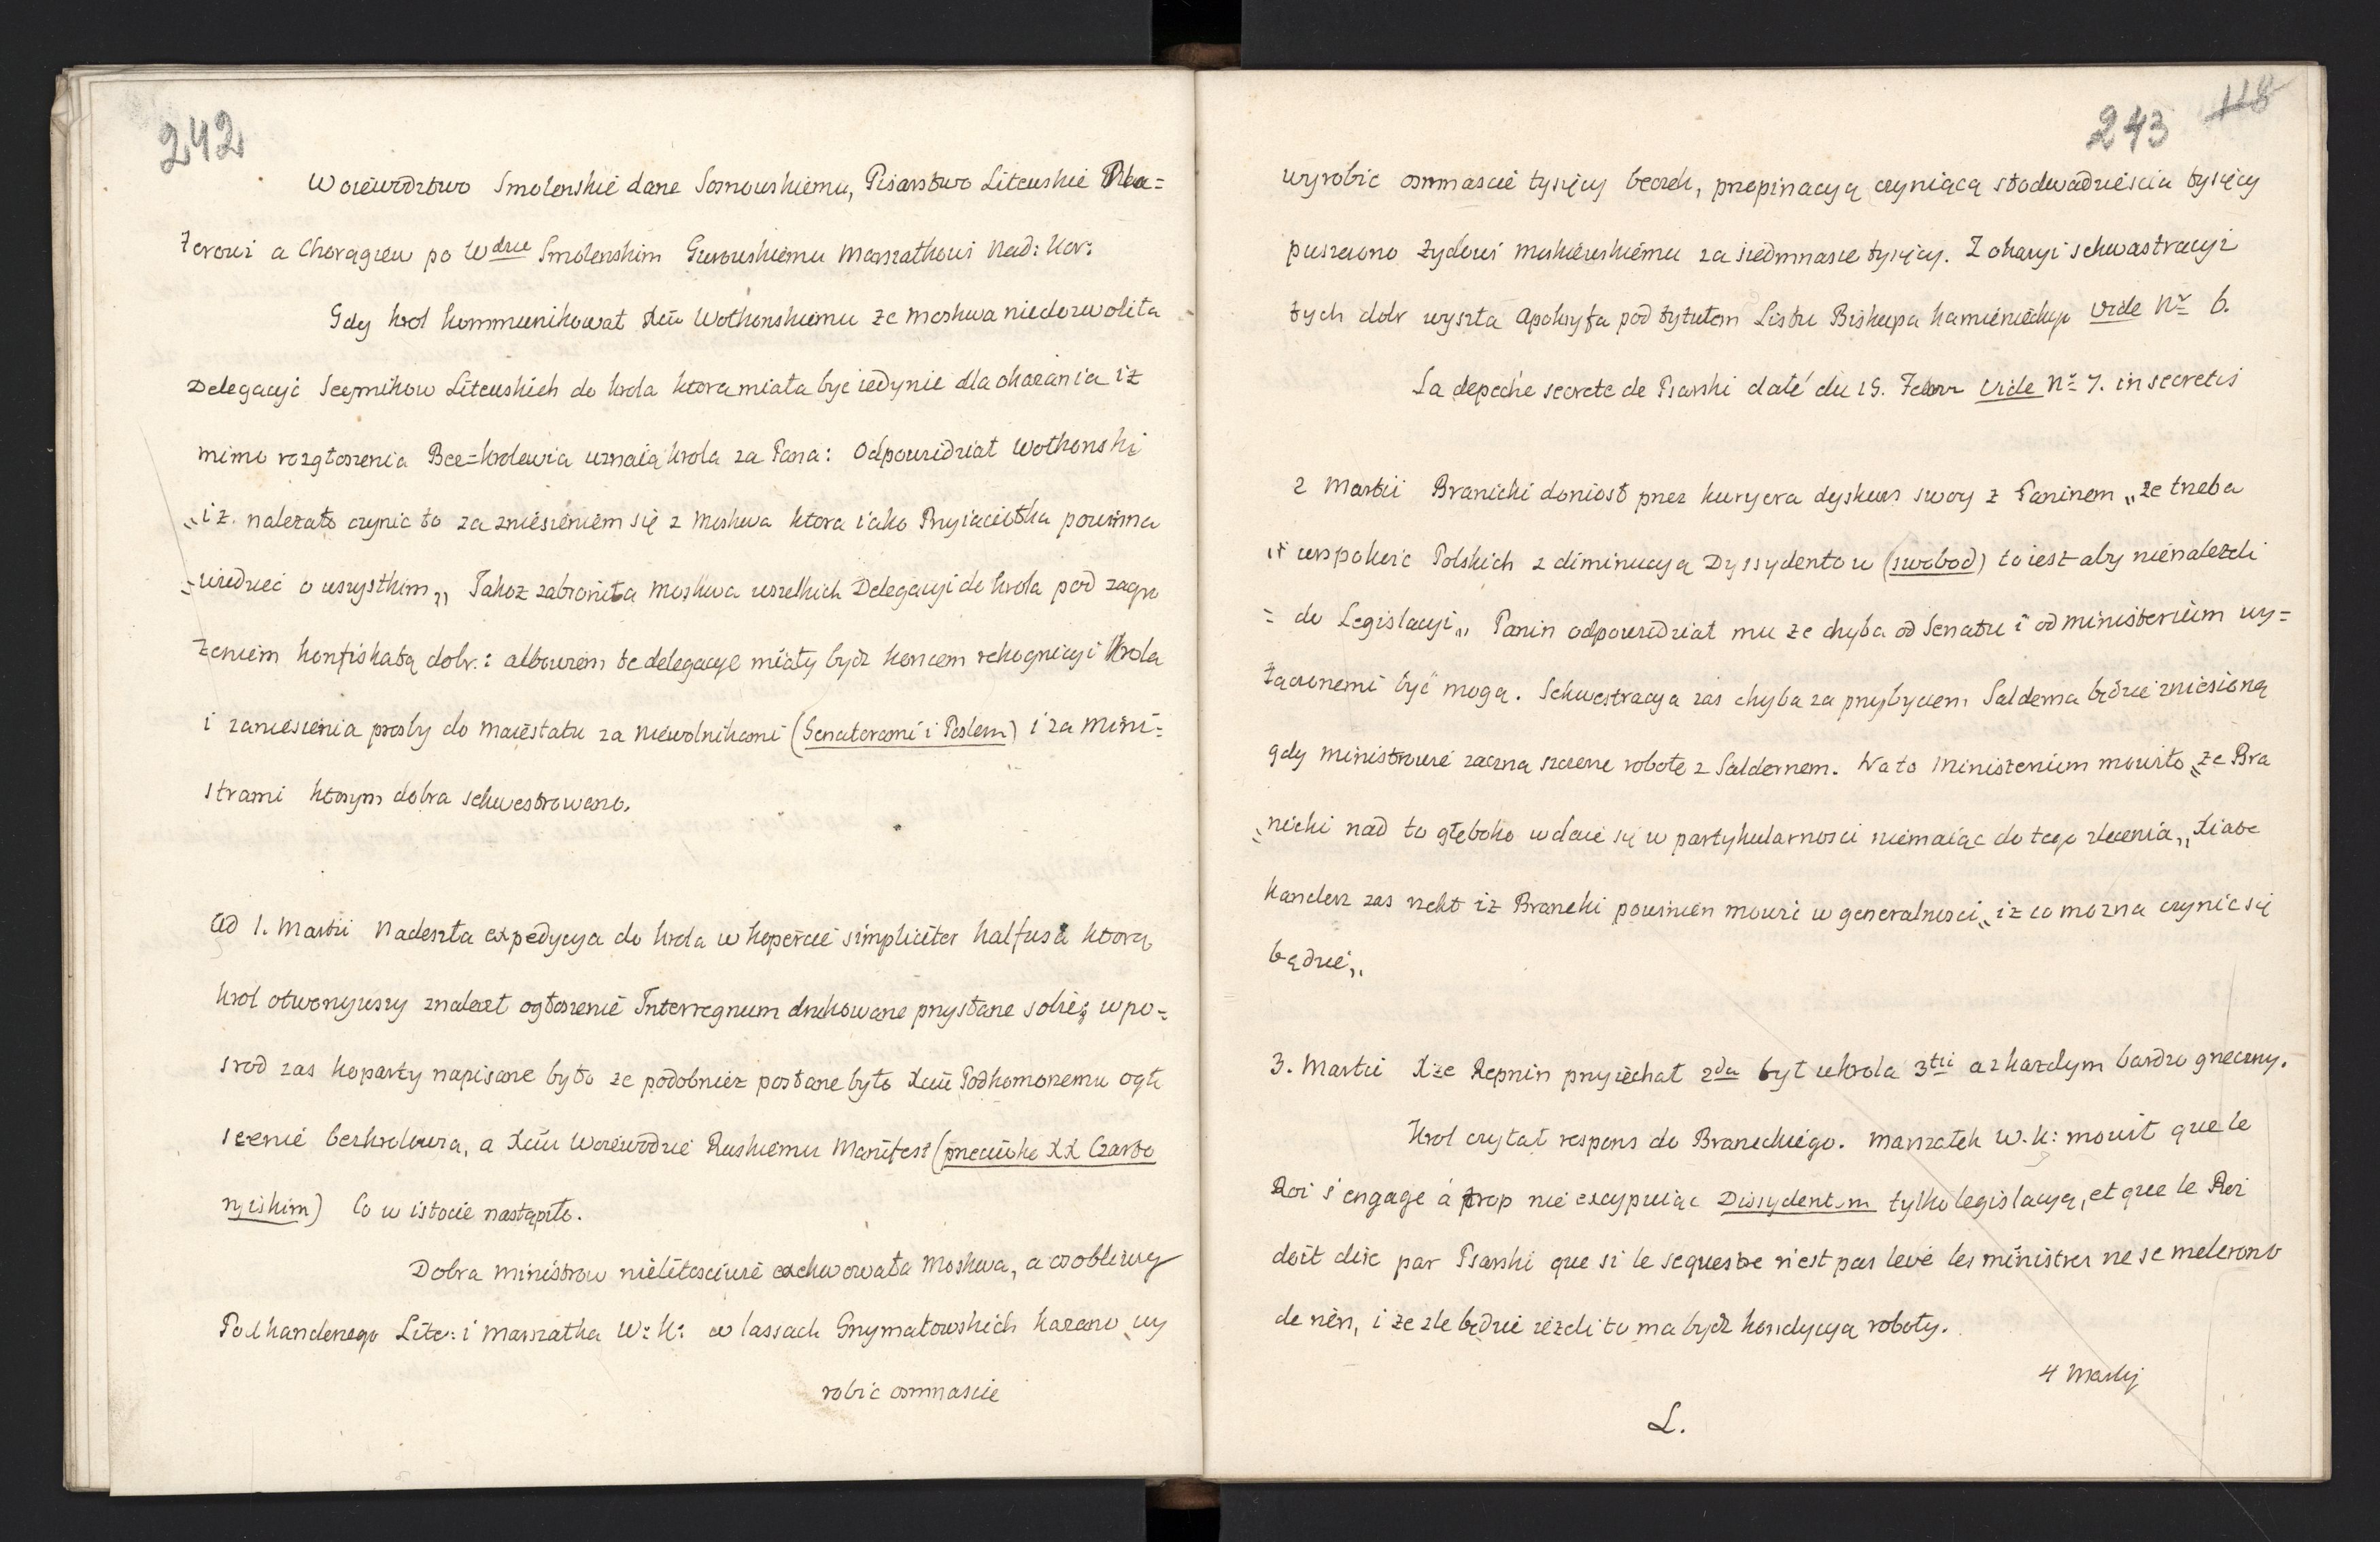 242
Woiewodztwo Smolenskie dane Sosnowskiemu, Pisarstwo Litewskie Pla=
terowi a Chorągiew po Wdzie Smolenskim Gurowskiemu Marszałkowi Nad: Kor:
Gdy krol kommunikował Xciu Wołkonskiemu ze Moskwa niedozwoliła
Delegacyi Seymikow Litewskich do krola ktora miała byc iedynie dla okazania iż
mimo rozgłoszenia Bez=krolewia uznaią krola za Pana: Odpowiedział Wołkonski
„iż. należało czynic to za zniesieniem się z Moskwą ktora iako Przyiaciołka powinna
„wiedzieć o wszystkim„ Jakoz zabroniła Moskwa wszelkich Delegacyi do krola pod zagro
żeniem konfiskatą dobr.: albowiem te delegacye miały bydz koncem rekognicyi Krola
i zaniesienia prosby do maiestatu za niewolnikami (Senatorami i Posłem) i za mini=
strami ktorym dobra sekwestrowano.
Ad 1. Martii Nadeszła expedycya do krola w kopercie simpliciter Kalfusa ktorą
krol otworzywszy znalazł ogłoszenie Interregnum drukowane przysłane sobie; wpo=
srod zas koperty napisane było ze podobniez posłane było Xciu Podkomorzemu ogło
szenie bezkrolewia, a Xciu Woiewodzie Ruskiemu Manifest (przeciwko XX Czarto
ryiskim) Co w istocie nastąpiło.
Dobra ministrow nielitosciwie exekwowała Moskwa, a osobliwy
Podkanclerzego Lite: i Marszałka W: K: w lassach Grzymałowskich kazano wy
robic osmnascie
243 118
wyrobic osmnascie tysięcy beczek, propinacyą czyniącą stodwadziescia tysięcy
puszczono żydowi moskiewskiemu za siedmnascie tysięcy. Z okazyi sekwestracyi
tych dobr wyszła Apokryfa pod tytułem Listu Biskupa kamienieckiego vide No 6.
La depeche secrete de Psarski daté du 15. Febvr vide No 7. in secretis
2 Martii Branicki doniosł przez kuryera dyskurs swoy z Paninem „że trzeba
„uspokoic Polskich z diminucyą Dyssydentow (swobod) to iest aby nienależeli
= do Legislacyi„ Panin odpowiedział mu że chyba od Senatu i od ministerium wy=
łączonemi być mogą. Sekwestracya zas chyba za przybyciem Salderna będzie zniesioną
gdy ministrowie zaczną szczerze robote z Saldernem. Na to Ministerium mowiło „że Bra
„nicki nad to głęboko wdaie się w partykularnosci niemaiąc do tego zlecenia„ Xiąże
Kanclerz zas rzekł iż Branicki powinien mowic w generalnosci „iż co mozna czynic się
będzie„
3. Martii Xże Repnin przyiechał 2da był u krola 3tii a z każdym bardzo grzeczny.
Krol czytał respons do Branickiego. Marszałek W. K: mowił que le
Roi s'engage á trop nie excypuiąc Dissydentom tylko legislacyą, et que le Roi
doit dire par Psarski que si le sequestre n'est pas levé les ministres ne se meleront
de rien, i że zle będzie iezeli to ma bydź kondycyą roboty.
4 Martij
L.